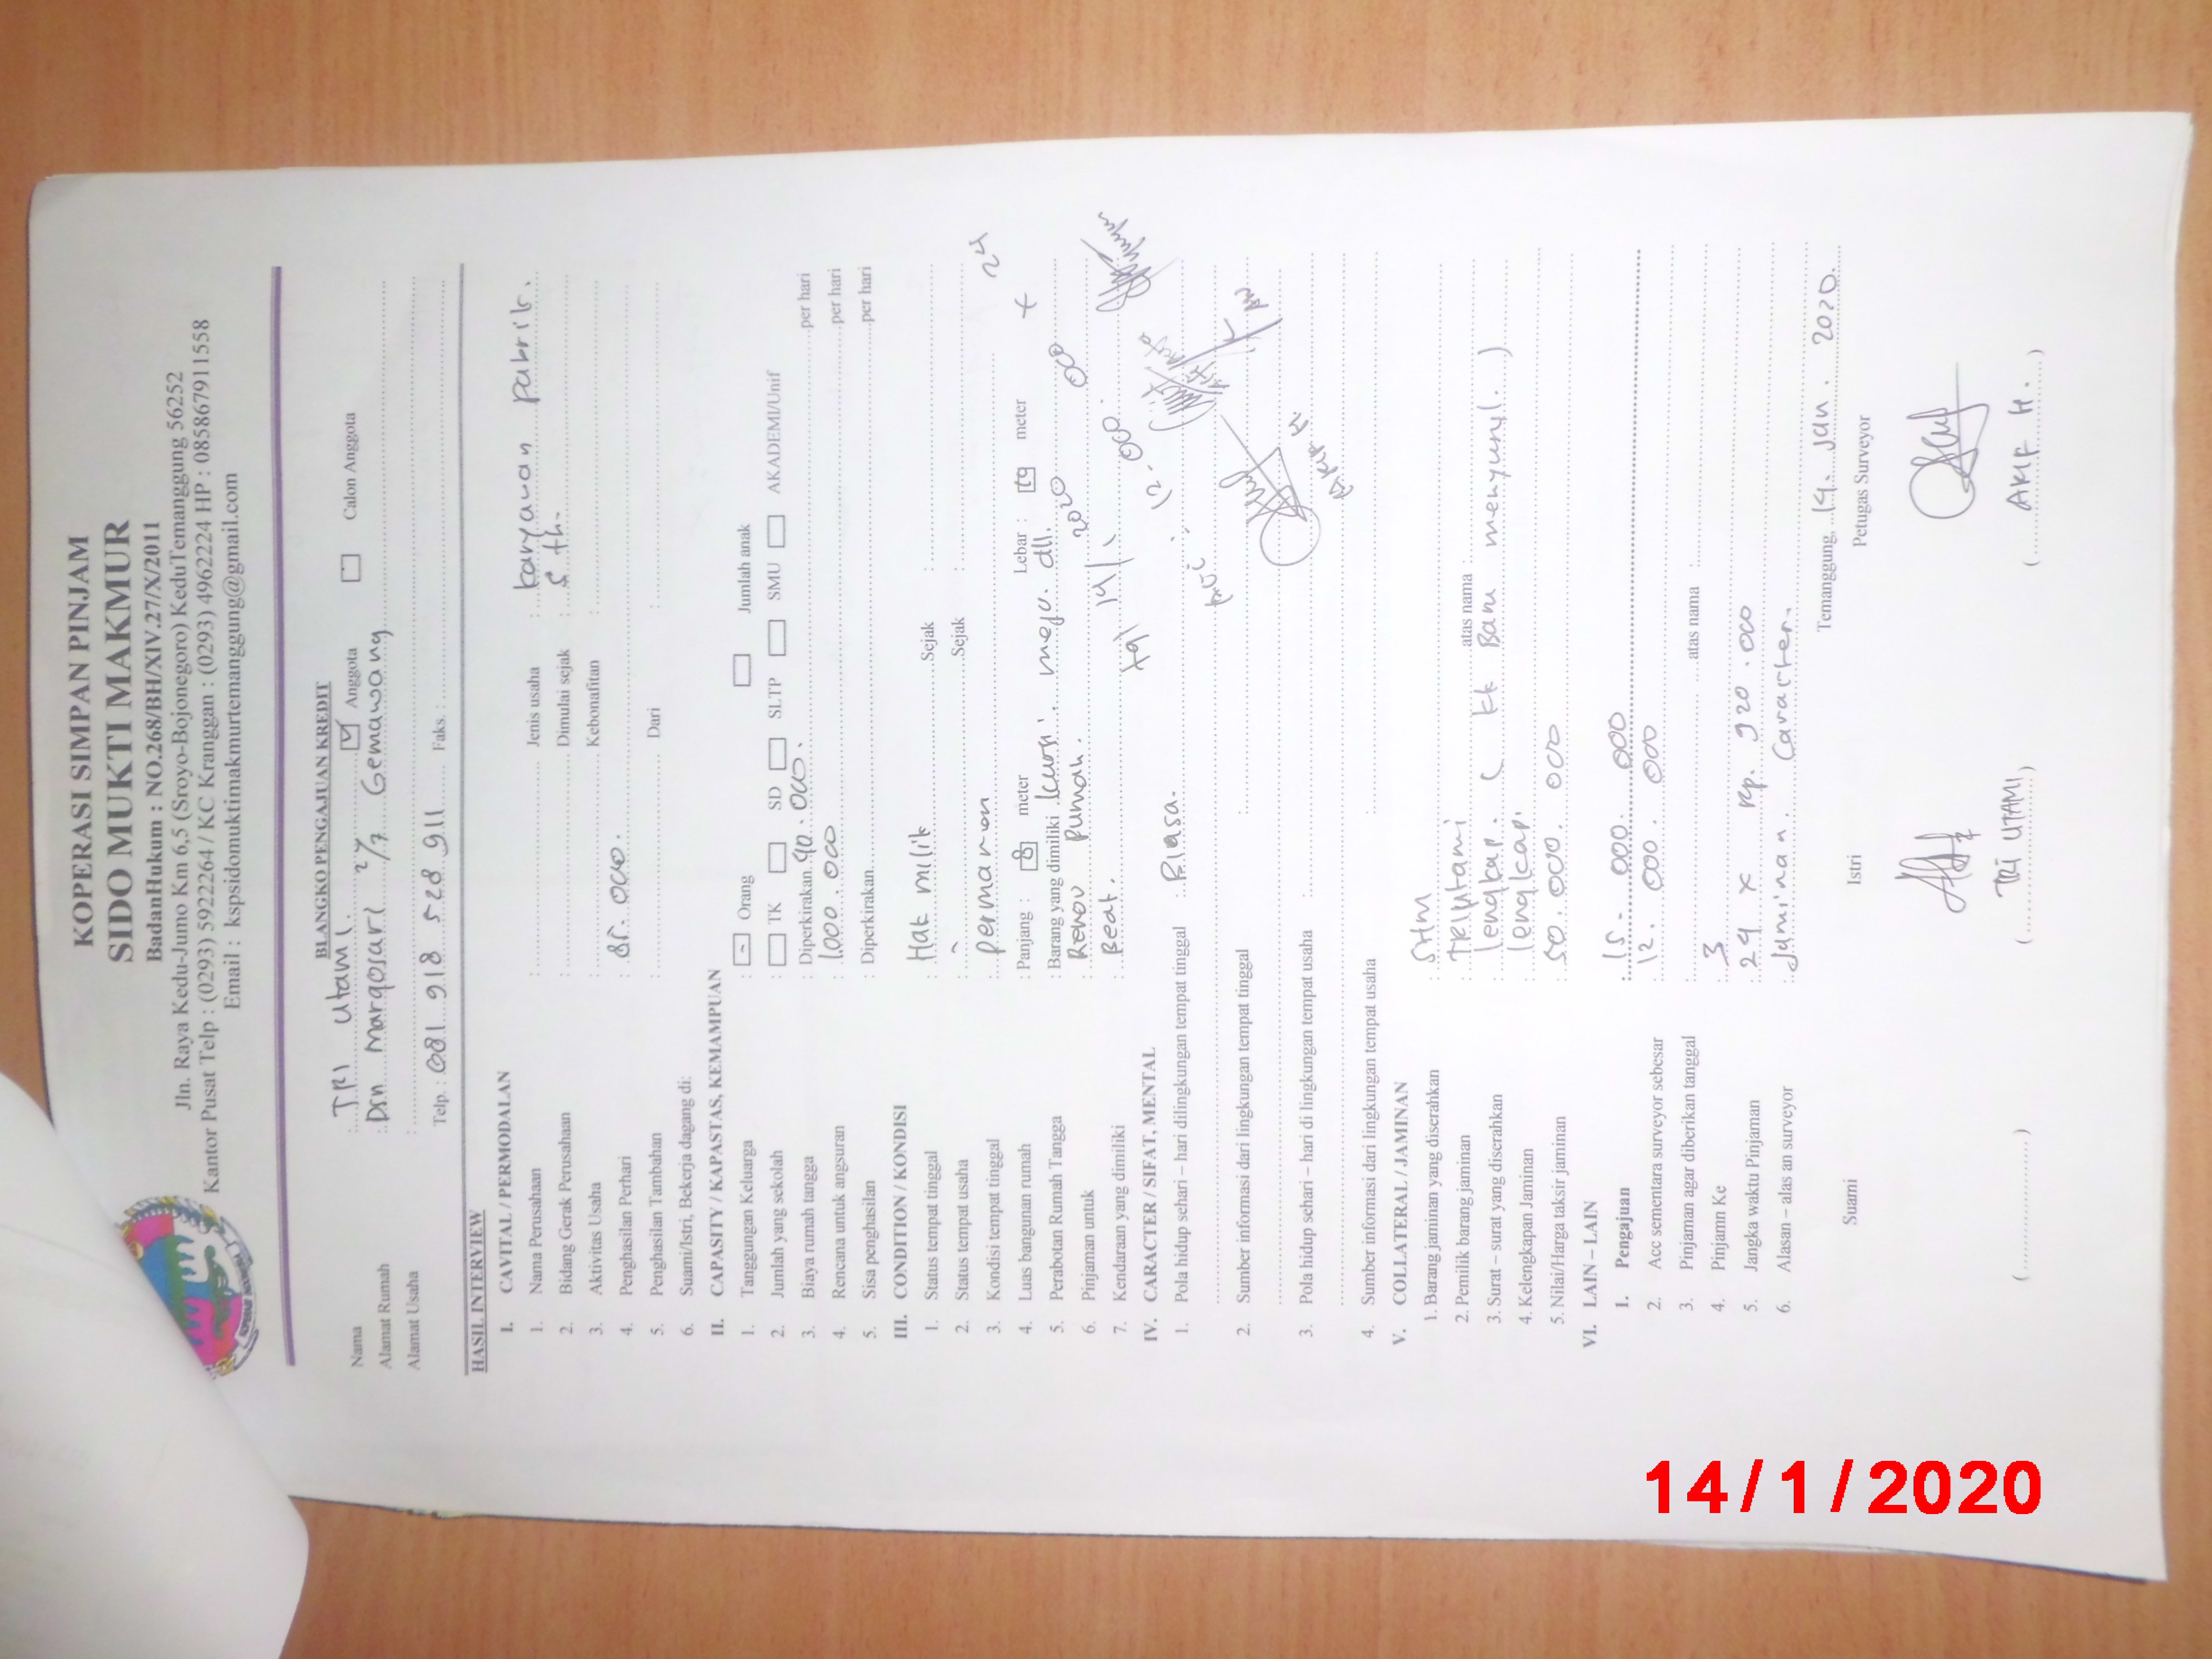 KOPERASI SIMPAN PINJAM
SIDO MUKTI MAKMUR
BadanHukum : NO.268/BH/XIV.27/X/2011
Jln. Raya Kedu-Jumo Km 6,5 (Sroyo-Bojonegoro) KeduTemanggung 56252
Kantor Pusat Telp : (0293) 5922264 / KC Kranggan : (0293) 4962224 HP : 085867911558
Email : kspsidomuktimakmurtemanggung@gmail.com
BLANGKO PENGAJUAN KREDIT
Nama : TRI Utami. ☑ Anggota ☐ Calon Anggota
Alamat Rumah : Dsn Margosari 2/7 Gemawang
Alamat Usaha :
Telp. : 081 918 528 911 Faks. :
HASIL INTERVIEW
I. CAVITAL / PERMODALAN
1. Nama Perusahaan : Jenis usaha : karyawan pabrik.
2. Bidang Gerak Perusahaan : Dimulai sejak : 5 th.
3. Aktivitas Usaha : Kebonafitan :
4. Penghasilan Perhari : 85.000.
5. Penghasilan Tambahan : Dari :
6. Suami/Istri, Bekerja dagang di:
II. CAPASITY / KAPASTAS, KEMAMPUAN
1. Tanggungan Keluarga : - Orang ☐ Jumlah anak
2. Jumlah yang sekolah : ☐ TK ☐ SD ☐ SLTP ☐ SMU ☐ AKADEMI/Unif
3. Biaya rumah tangga : Diperkirakan 40.000. per hari
4. Rencana untuk angsuran : 1000.000 per hari
5. Sisa penghasilan : Diperkirakan per hari
III. CONDITION / KONDISI
1. Status tempat tinggal : Hak milik Sejak :
2. Status tempat usaha : - Sejak :
3. Kondisi tempat tinggal : permanen
4. Luas bangunan rumah : Panjang : 8 meter Lebar : meter
5. Perabotan Rumah Tangga : Barang yang dimiliki kursi. meja. dll.
6. Pinjaman untuk : Renov Rumah.
7. Kendaraan yang dimiliki : Beat.
x 24
tgl 14/1 2020
12.000.000
IV. CARACTER / SIFAT, MENTAL
1. Pola hidup sehari – hari dilingkungan tempat tinggal : Biasa.
2. Sumber informasi dari lingkungan tempat tinggal :
AKIF H
3. Pola hidup sehari – hari di lingkungan tempat usaha :
4. Sumber informasi dari lingkungan tempat usaha :
V. COLLATERAL / JAMINAN
1. Barang jaminan yang diserahkan : SHM
2. Pemilik barang jaminan : TRI Utami atas nama :
3. Surat – surat yang diserahkan : lengkap. ( KK Baru menyusul. )
4. Kelengkapan Jaminan : lengkap.
5. Nilai/Harga taksir jaminan : 50.000.000
VI. LAIN – LAIN
1. Pengajuan : 15.000.000
2. Acc sementara surveyor sebesar : 12.000.000
3. Pinjaman agar diberikan tanggal : atas nama :
4. Pinjamn Ke : 3
5. Jangka waktu Pinjaman : 24 x Rp. 920.000
6. Alasan – alas an surveyor : Jaminan. Caracter.
Temanggung, 14. Jan. 2020.
Suami Istri Petugas Surveyor
(....................) ( TRI UTAMI ) ( AKIF H. )
14/1/2020